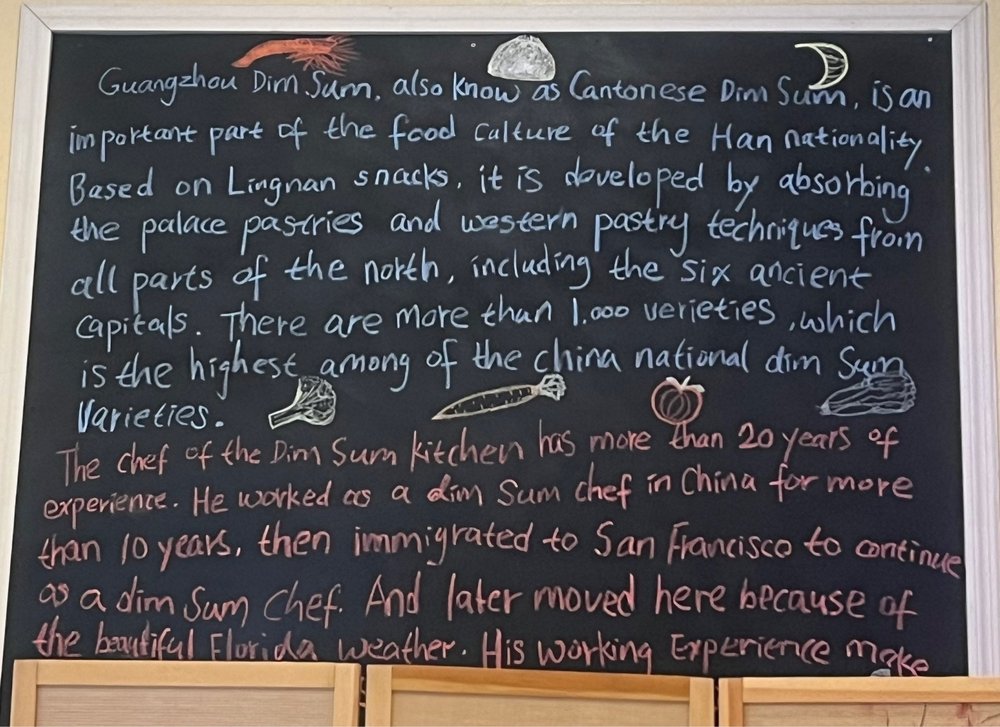 Guangzhou Dim Sum, also know as Cantonese Dim Sum, is an
important part of the food culture of the Han nationality.
Based on Lingnan snacks, it is developed by absorbing
the palace pastries and western pastry techniques from
all parts of the north, including the six ancient
capitals. There are more than 1.000 verieties, which
is the highest among of the china national dim Sum
Varieties.
The chef of the Dim Sum kitchen has more than 20 years of
experience. He worked as a dim Sum chef in China for more
than 10 years, then immigrated to San Francisco to continue
as a dim Sum chef. And later moved here because of
the beautiful Florida weather. His working Experience make